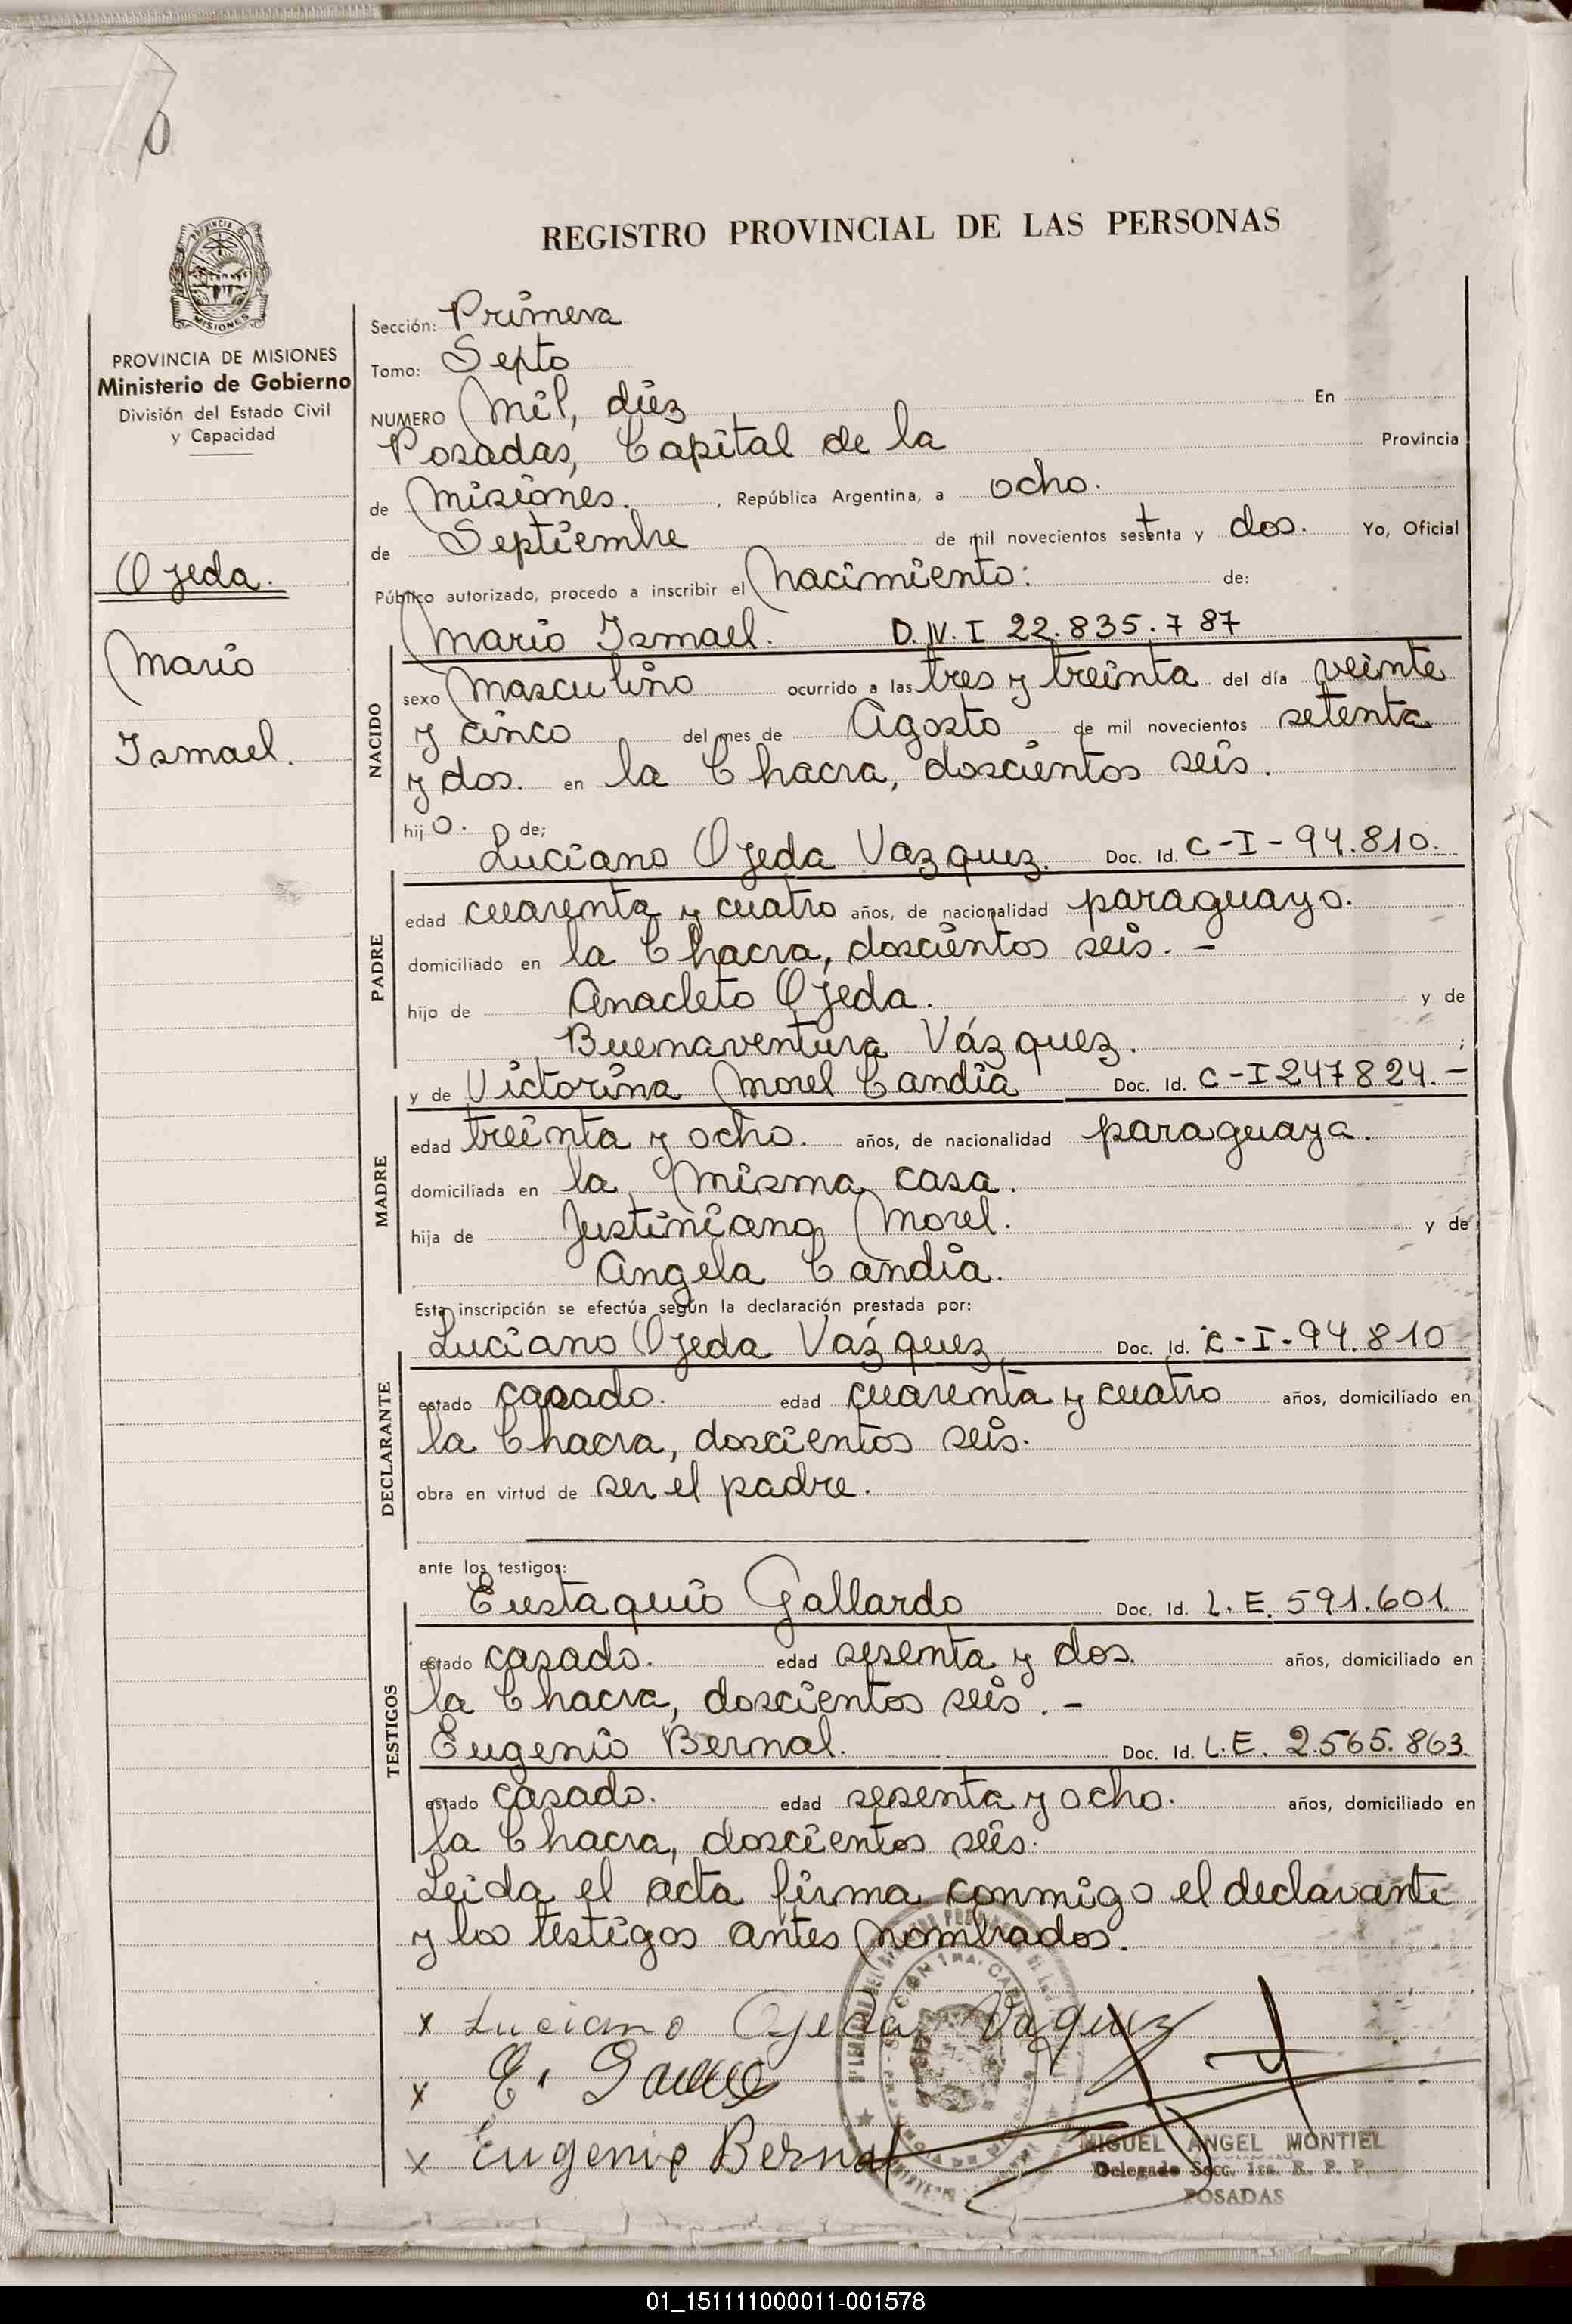 REGISTRO PROVINCIAL DE LAS PERSONAS
PROVINCIA DE
MISIONES
PROVINCIA DE MISIONES
Ministerio de Gobierno
División del Estado Civil
y Capacidad
Ojeda.
Mario
Ismael.
Sección: Primera
Tomo: Septo
NUMERO Mil, diez En
Posadas, Capital de la Provincia
de Misiones. , República Argentina, a ocho.
de Septiembre de mil novecientos setenta y dos. Yo, Oficial
Público autorizado, procedo a inscribir el Nacimiento: de:
Mario Ismael. D.N.I 22.835.787
NACIDO
sexo Masculino ocurrido a las tres y treinta del día veinte
y cinco del mes de Agosto de mil novecientos setenta
y dos. en la Chacra, doscientos seis.
hijo. de;
Luciano Ojeda Vazquez. Doc. Id. C-I-94.810.
PADRE
edad cuarenta y cuatro años, de nacionalidad paraguayo.
domiciliado en la Chacra, doscientos seis. -
hijo de Anacleto Ojeda. y de
Buenaventura Vázquez. ;
y de Victorina Morel Candia Doc. Id. C-I 247824. -
MADRE
edad treinta y ocho. años, de nacionalidad paraguaya.
domiciliada en la misma casa.
hija de Justiniano Morel. y de
Angela Candia.
Esta inscripción se efectúa según la declaración prestada por:
Luciano Ojeda Vázquez Doc. Id. C-I-94.810
DECLARANTE
estado casado. edad cuarenta y cuatro años, domiciliado en
la Chacra, doscientos seis.
obra en virtud de ser el padre.
ante los testigos:
Eustaquio Gallardo Doc. Id. L.E. 591.601.
TESTIGOS
estado casado. edad sesenta y dos. años, domiciliado en
la Chacra, doscientos seis. -
Eugenio Bernal. Doc. Id. L.E. 2.565.863.
estado casado. edad sesenta y ocho. años, domiciliado en
la Chacra, doscientos seis.
Leida el acta firma conmigo el declarante
y los testigos antes nombrados.
x Luciano Ojeda Vazquez
x E.
x Eugenio Bernal
MIGUEL ANGEL MONTIEL
Delegado Secc. 1ra. R. P. P.
POSADAS
01_151111000011-001578